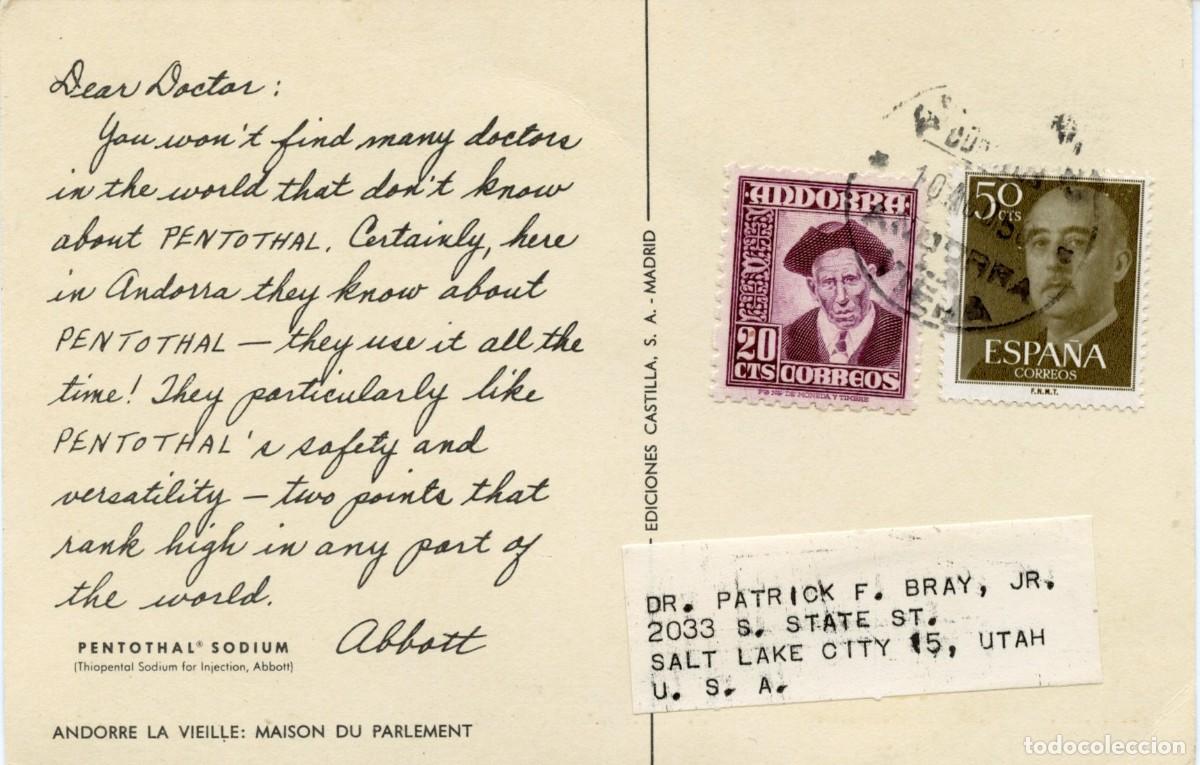 Dear Doctor:
You won't find many doctors
in the world that don't know
about PENTOTHAL. Certainly, here
in Andorra they know about
PENTOTHAL — they use it all the
time! They particularly like
PENTOTHAL's safety and
versatility — two points that
rank high in any part of
the world.
Abbott
PENTOTHAL® SODIUM
(Thiopental Sodium for Injection, Abbott)
ANDORRE LA VIEILLE: MAISON DU PARLEMENT
EDICIONES CASTILLA, S. A. - MADRID
ANDORRA
20
CTS CORREOS
50
CTS
ESPAÑA
CORREOS
F.N.M.T.
ANDORRA
DR. PATRICK F. BRAY, JR.
2033 S. STATE ST.
SALT LAKE CITY 15, UTAH
U. S. A.
todocoleccion